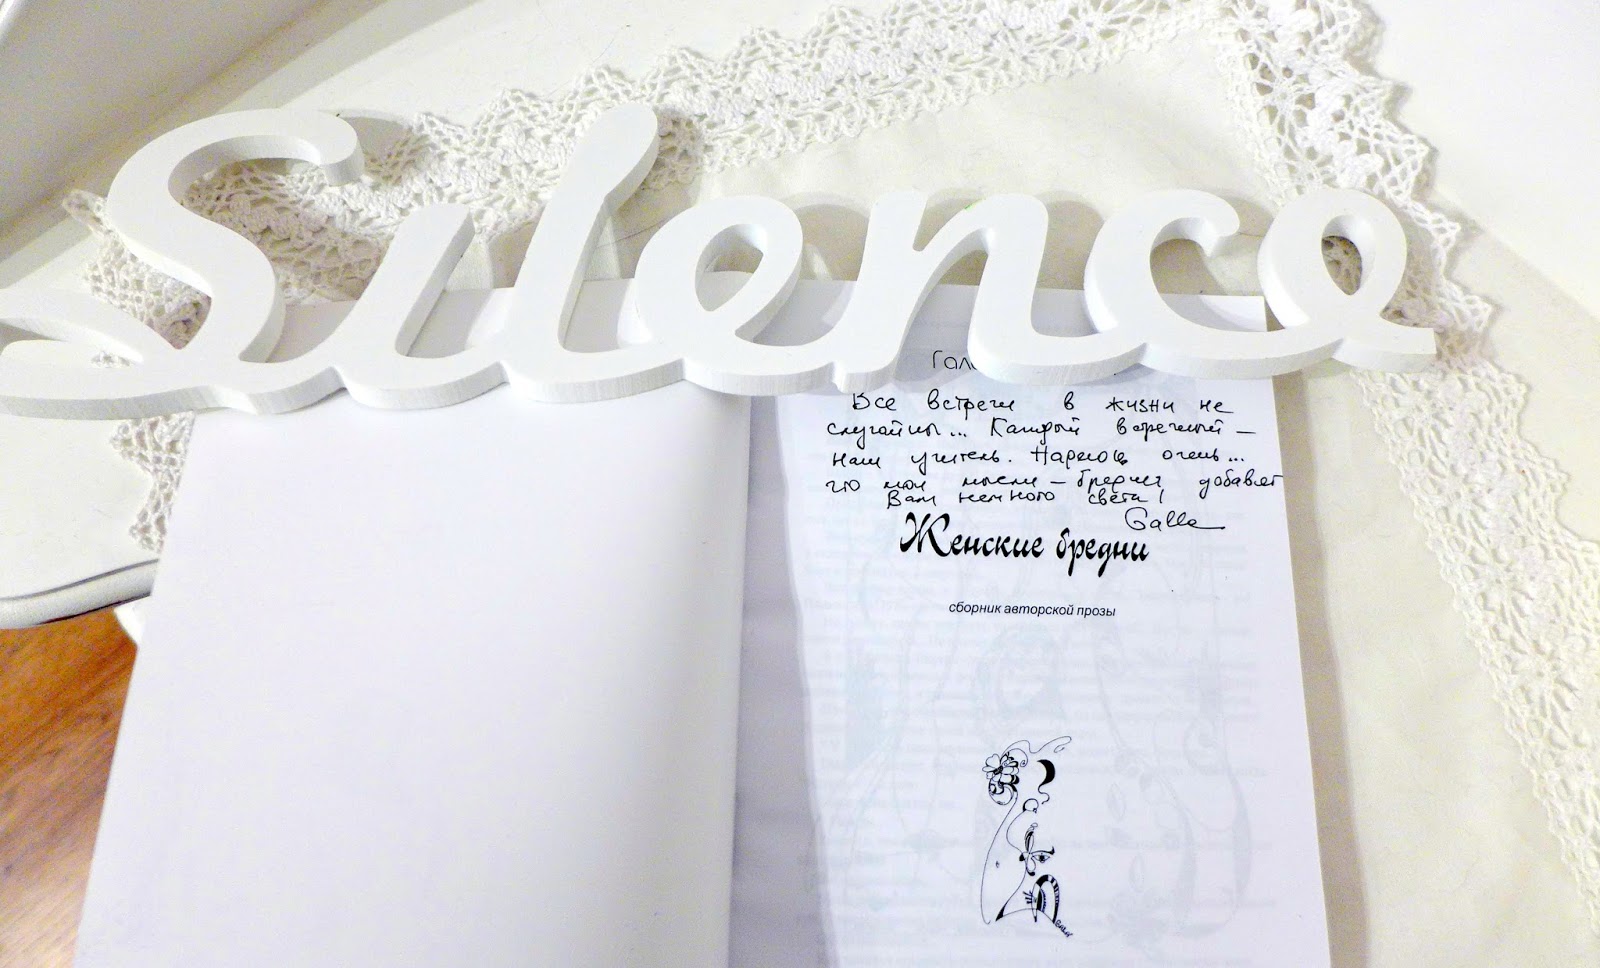 Silence
Гал
Все встречи в жизни не
случайны... Каждый встречный –
наш учитель. Надеюсь очень...
что мои мысли – бредни добавят
Вам немного света!
Galla
Женские бредни
сборник авторской прозы